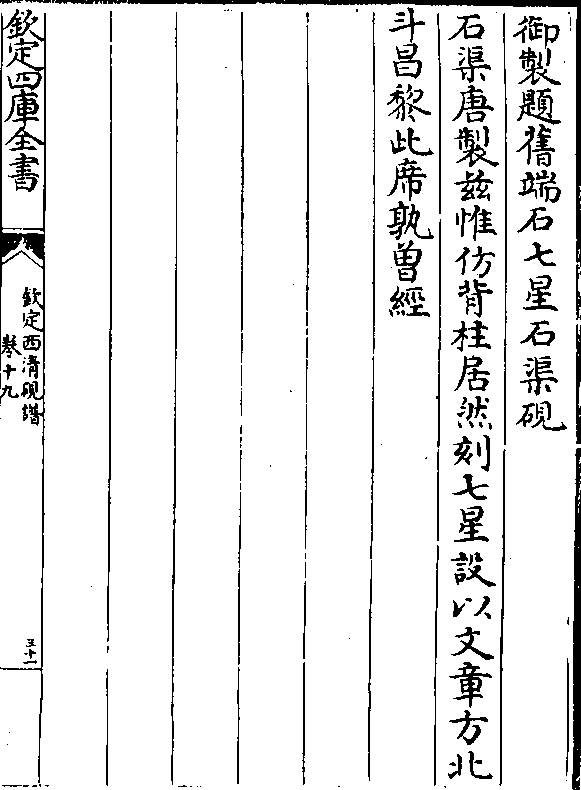 御製題舊端石七星石渠硯
石渠唐製茲惟仿背柱居然刻七星設以文章方北
斗昌黎此席孰曽經
欽定四庫全書
欽定西清硯譜
卷十九
三十一